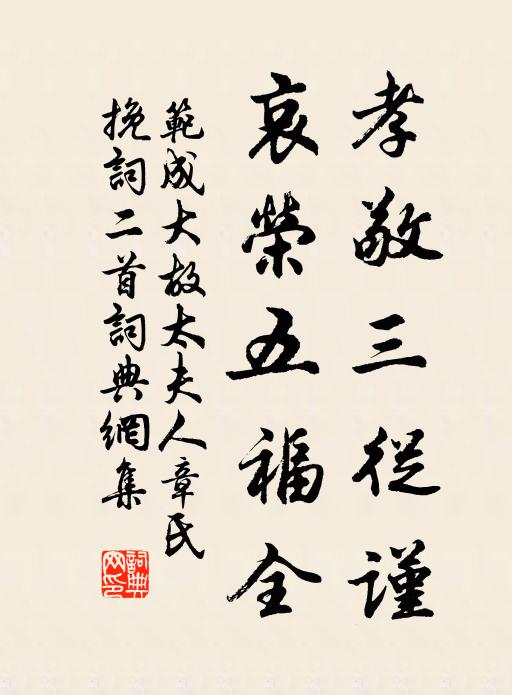 孝敬三從謹
哀榮五福全
範成大故太夫人章氏
挽詞二首詞典網集
詞典
网印